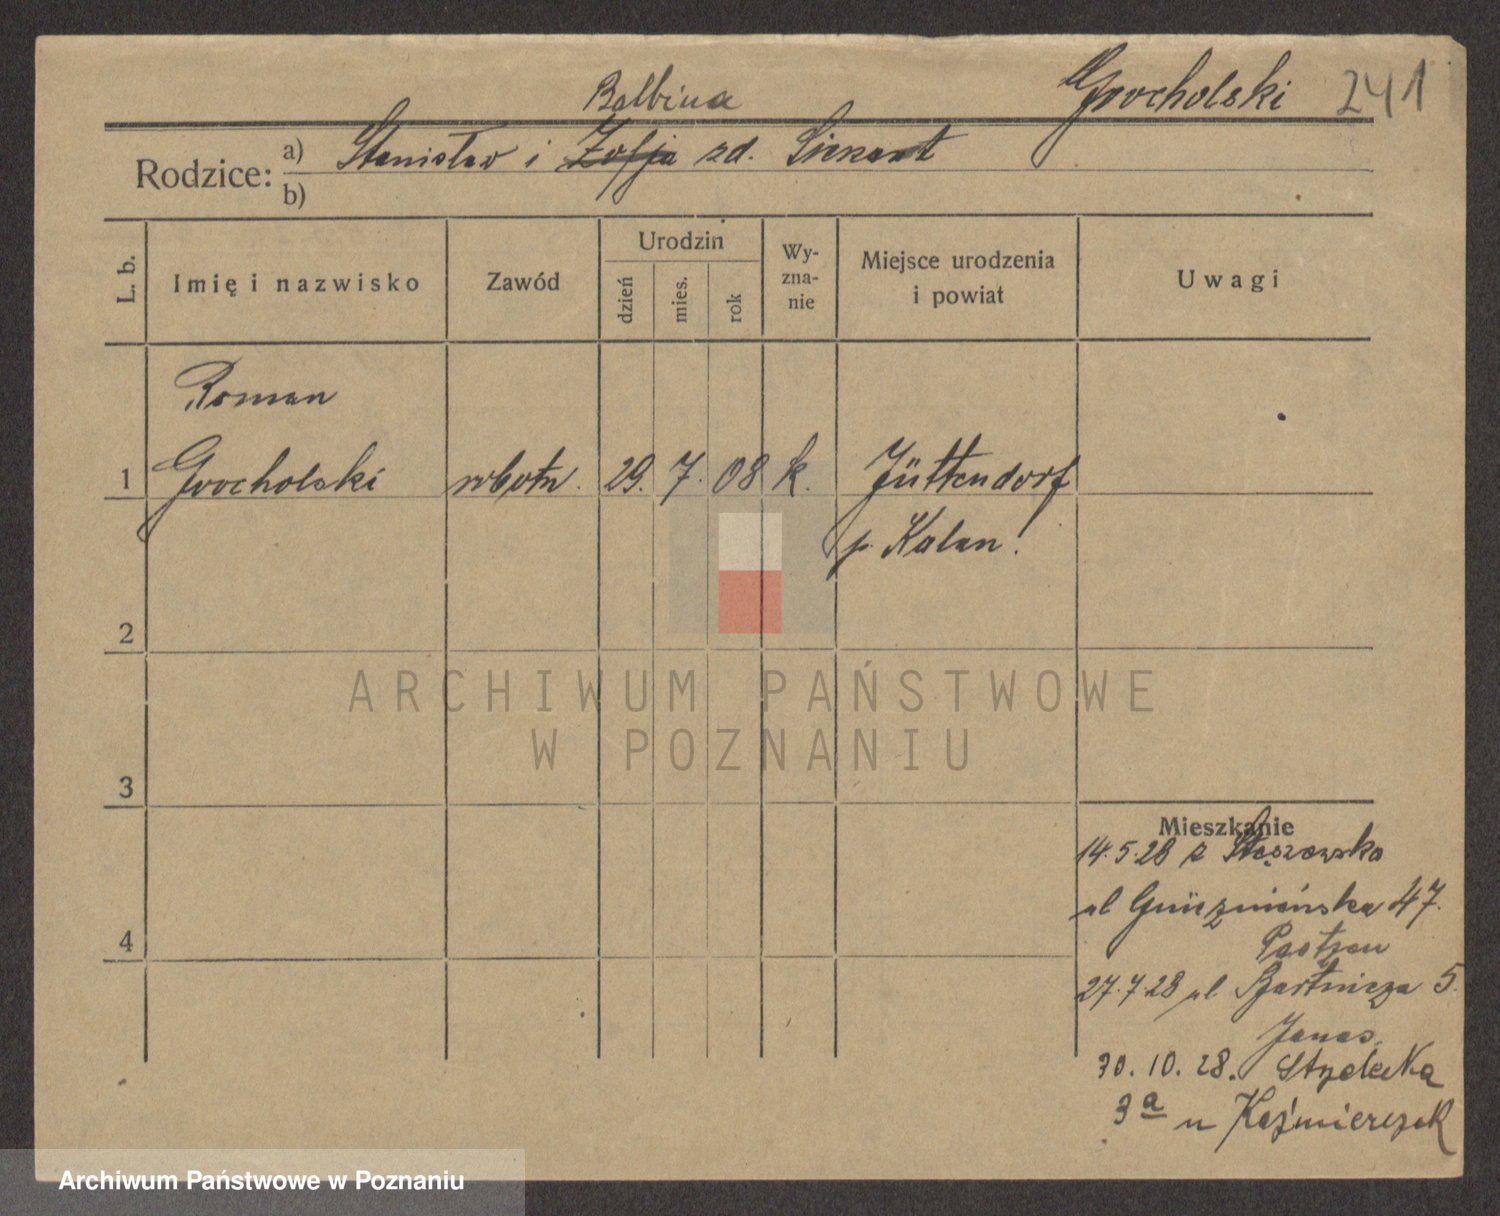 Grocholski 241
Balbina
Rodzice: a) Stanisław i Zofja zd. Lienart
b)
L. b. Imię i nazwisko Zawód Urodzin dzień mies. rok Wy-zna-nie Miejsce urodzenia i powiat Uwagi
Roman
1 Grocholski robotn. 29. 7. 08 k. Jüttendorf
p. Kalan.
2
3
4
Mieszkanie
14.5.28 z Stęszewska
ul Gnieźnieńska 47.
27.7.28 ul Bartnicza 5.
Janas
30. 10. 28.
3a u Kaźmierczak
ARCHIWUM PAŃSTWOWE
W POZNANIU
Archiwum Państwowe w Poznaniu